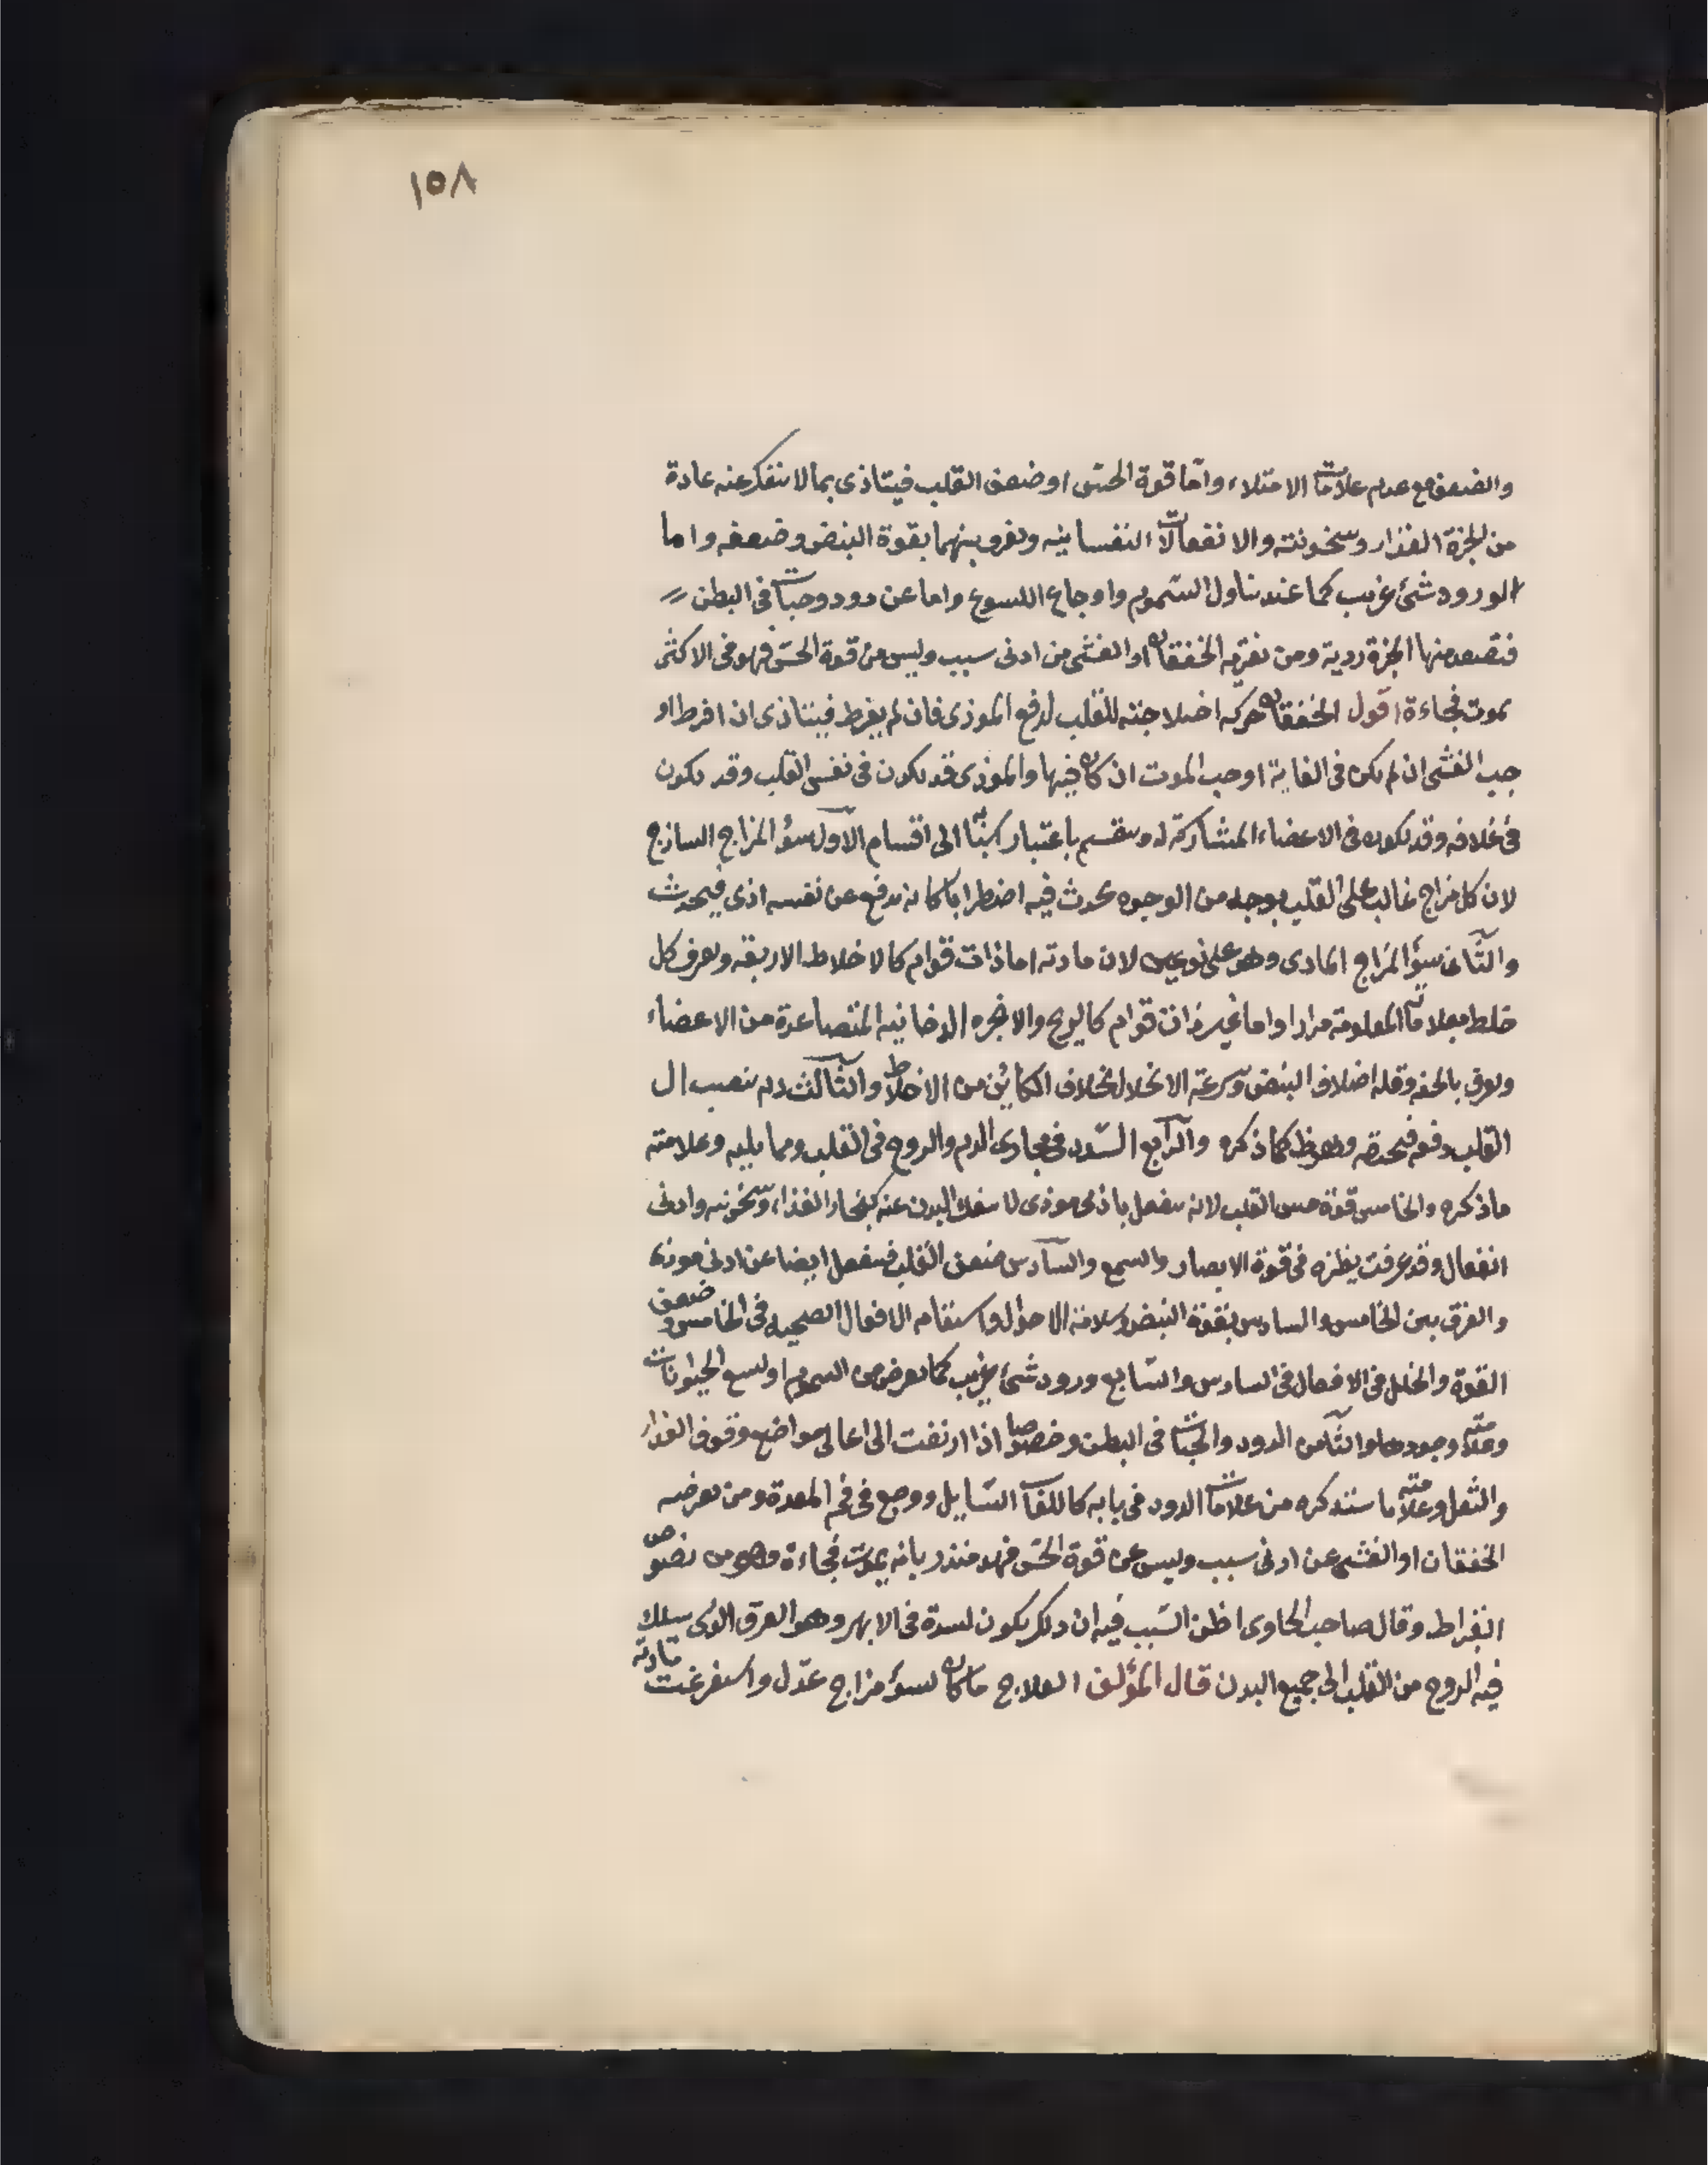 ١٥٨
والضعف مع عدم علامات الامتلاء واما قوة الحس او ضعف القلب فيتاذى بما لا ينفك عنه عادة
من ابخرة الغذاء وسخونته والانفعالات النفسانيه ويفرق بينهما بقوة النبض وضعفه واما
لورود شئ غريب كما عند تناول السموم واوجاع اللسوع واما عن دود وحيات في البطن
فتصعد منها ابخرة ردية ومن يعتريه الخفقان او الغشى من ادنى سبب وليس من قوة الحس فهو في الاكثر
يموت فجاءة اقول الخفقان حركه اختلاجته للقلب لدفع الموذى فان لم يفرط فيتاذى ان افرط او
جب الغشى ان لم يكن في الغاية اوجب الموت ان كان فيها والموذى قد يكون في نفس القلب وقد يكون
في غلافه وقد يكون في الاعضاء المشاركة له وينقسم باعتبار الى اقسام الاول سؤ المزاج الساذج
لان كل مزاج غالب على القلب بوجه من الوجوه يحدث فيه اضطرابا كانه يدفع عن نفسه اذى فيحدث
والثانى سؤ المزاج المادى وهو على نوعين لان مادته اما ذات قوام كالاخلاط الاربعه ويعرف كل
خلط بعلاماته المعلومة مرارا واما غير ذات قوام كالريح والابخره الدخانيه المتصاعدة من الاعضاء
ويعرف بالخفه وقله اختلاف النبض وسرعة الانحلال بخلاف الكائن من الاخلاط والثالث دم ينصب ال
القلب دفعه فيخنقه كما ذكره والرابع السدد في مجارى الدم والروح في القلب ومما يليه وعلامته
ما ذكره والخامس قوة حس القلب لانه ينفعل باذى موذى لا ينفك البدن عنه كبخار الغذاء وسخونته وادنى
انفعال وقد عرفت نظيره في قوة الابصار والسمع والسادس ضعف القلب فينفعل ايضا عن ادنى موذى
والفرق بين الخامس والسادس بقوة النبض وسلامة الاحوال واستقام الافعال الصحيه في الخامس وضعف
القوة والخلل في الافعال في السادس والسابع ورود شئ غريب كما يعرض من السموم او لسع الحيوانات
وعلامته وجودها والثامن الدود والحيات في البطن وخصوصا اذا ارتفعت الى اعالى مواضع وقوف الغذاء
والثفل وعلامته ما سنذكره من علامات الدود في بابه كاللعاب السايل ووجع في فم المعدة ومن يعرضه
الخفقان او الغشى عن ادنى سبب وليس عن قوة الحس فهو منذر بانه يموت فجاءة وهو من نصوص
ابقراط وقال صاحب الحاوى اظن السبب فيه ان ذلك يكون لسدة في الابهر وهو العرق الذى يسلك
فيه الروح من القلب الى جميع البدن قال المؤلف العلاج ما كان لسؤ مزاج عدل واستفرغت مادته